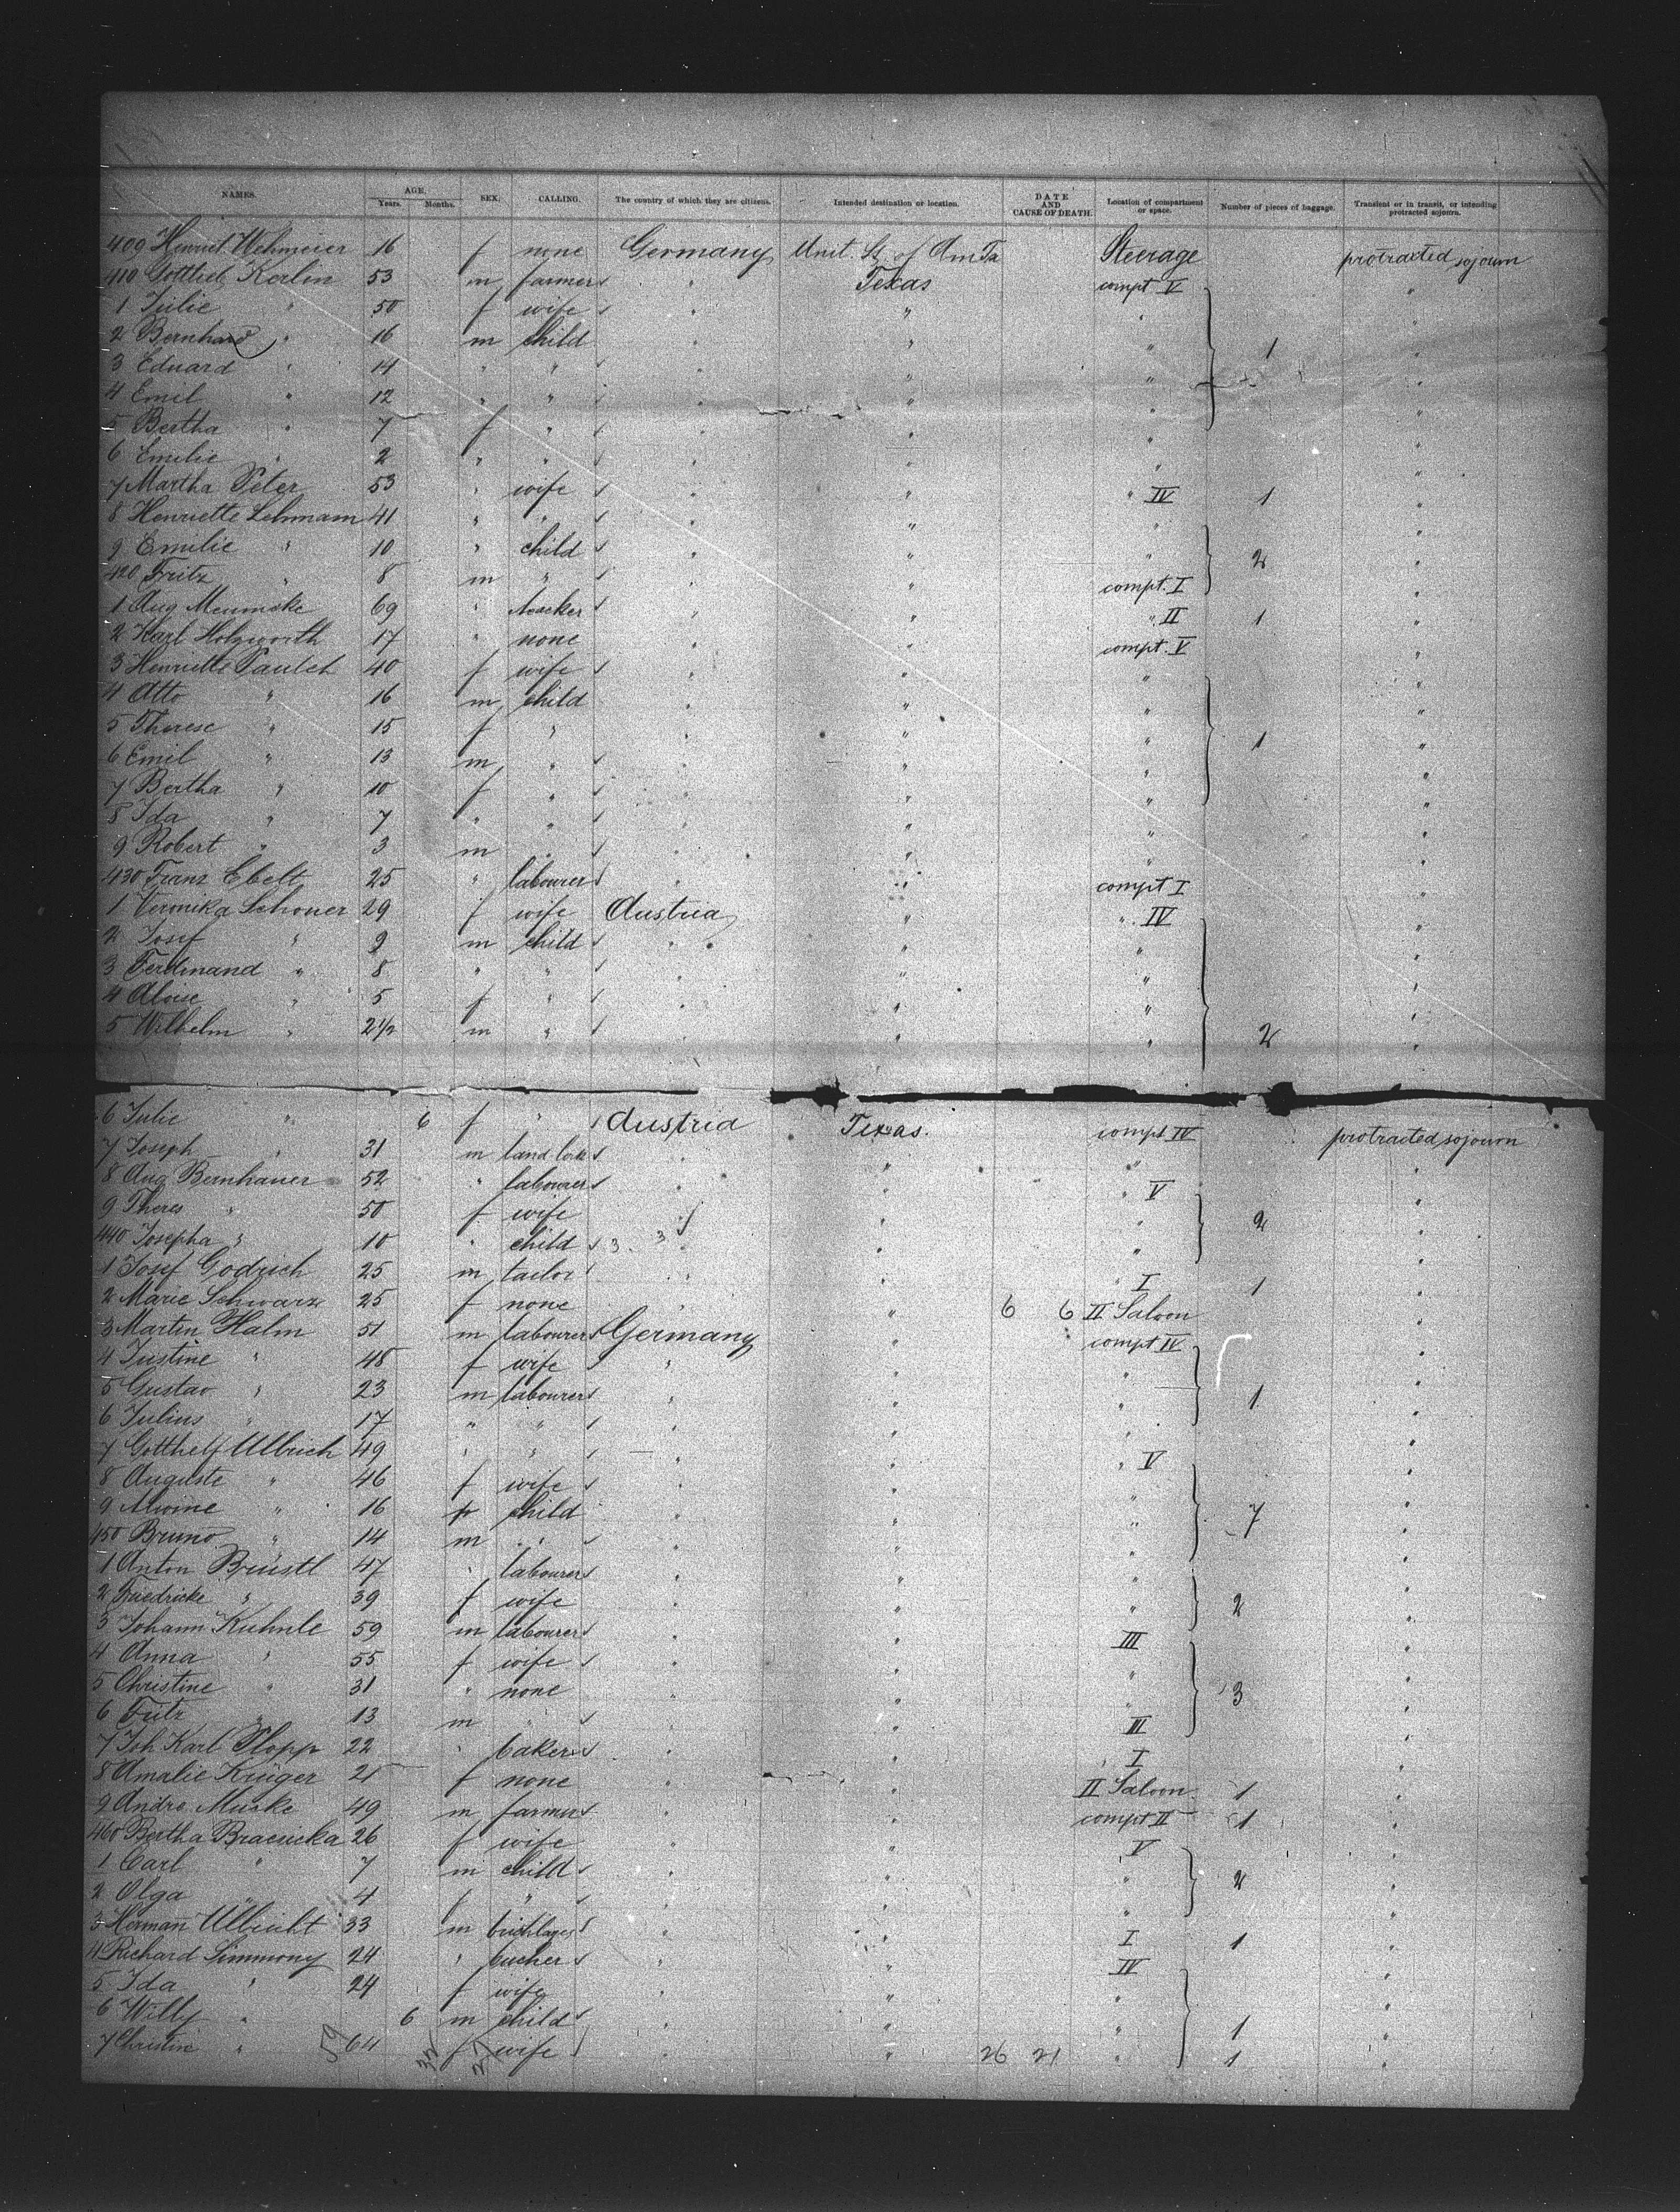 NAMES. AGE. Years. Months. SEX. CALLING. The country of which they are citizens. Intended destination or location. DATE AND CAUSE OF DEATH. Location of compartment or space. Number of pieces of baggage. Transient or in transit, or intending protracted sojourn.
409 Henriet. Wehmeier 16 f none Germany Unit. St. of Am Steerage protracted sojourn
410 Gottlieb Kerlin 53 m farmer " Texas compt V "
1 Julie " 50 f wife " " "
2 Bernhard " 16 m child " " " 1 "
3 Eduard " 14 " " " " " "
4 Emil " 12 " " " " " "
5 Bertha " 7 f " " " " "
6 Emilie " 2 " " " " " "
7 Martha Peter 53 " wife " " " IV 1 "
8 Henriette Lehmann 41 " " " " " "
9 Emilie " 10 " child " " " 2 "
420 Fritz " 8 m " " " compt. I "
1 Aug 69 " " " " II 1 "
2 Karl Holzworth 17 " none " " compt. V "
3 Henriette 40 f wife " " " "
4 Otto " 16 m child " " " "
5 Therese " 15 f " " " " 1 "
6 Emil " 13 m " " " " "
7 Bertha " 10 f " " " " "
8 Ida " 7 " " " " " "
9 Robert " 3 m " " " " "
430 Franz Ebelt 25 " labourer " " compt I "
1 Veronika Schoner 29 f wife Austria " " IV "
2 Josef " 9 m child " " " "
3 Ferdinand " 8 " " " " " "
4 Aloise " 5 f " " " " "
5 Wilhelm " 2 1/2 m " " " " 2 "
6 Julie " 6 f " Austria Texas. compt IV protracted sojourn
7 Joseph " 31 m " " " "
8 Aug Bernhauer 52 " labourer " " " V "
9 Theres " 50 f wife " " " 2 "
440 Josepha " 10 " child 3 3 " " "
1 Josef Godrich 25 m tailor " " " I 1 "
2 Marie Schwarz 25 f none " " 6 6 II Saloon "
3 Martin Halm 51 m labourer Germany " compt IV "
4 Justine " 48 f wife " " " "
5 Gustav " 23 m labourer " " " 1 "
6 Julius " 17 " " " " " "
7 Gotthelf Ullrich 49 " " " " " V "
8 Auguste " 46 f wife " " " "
9 Alwine " 16 f child " " " 7 "
450 Bruno " 14 m " " " " "
1 Anton Brüstl 47 " labourer " " " "
2 Friedricke " 39 f wife " " " 2 "
3 Johann Kuhnle 59 m labourer " " III "
4 Anna " 55 f wife " " " "
5 Christine " 31 " none " " " 3 "
6 Fritz " 13 m " " " III "
7 Joh Karl Plopp 22 " baker " " " I "
8 Amalie Krüger 21 f none " " II Saloon 1 "
9 Andre. Muske 49 m farmer " " compt II 1 "
460 Bertha 26 f wife " " V "
1 Carl " 7 m child " " " 2 "
2 Olga " 4 f " " " " "
3 Hermann Ulbricht 33 m " " I 1 "
4 Richard Simmony 24 " " " IV "
5 Ida " 24 f wife " " " "
6 Willy " 6 m child " " " 1 "
7 Christin " 59 64 32 f 27 wife " 26 21 " 1 "